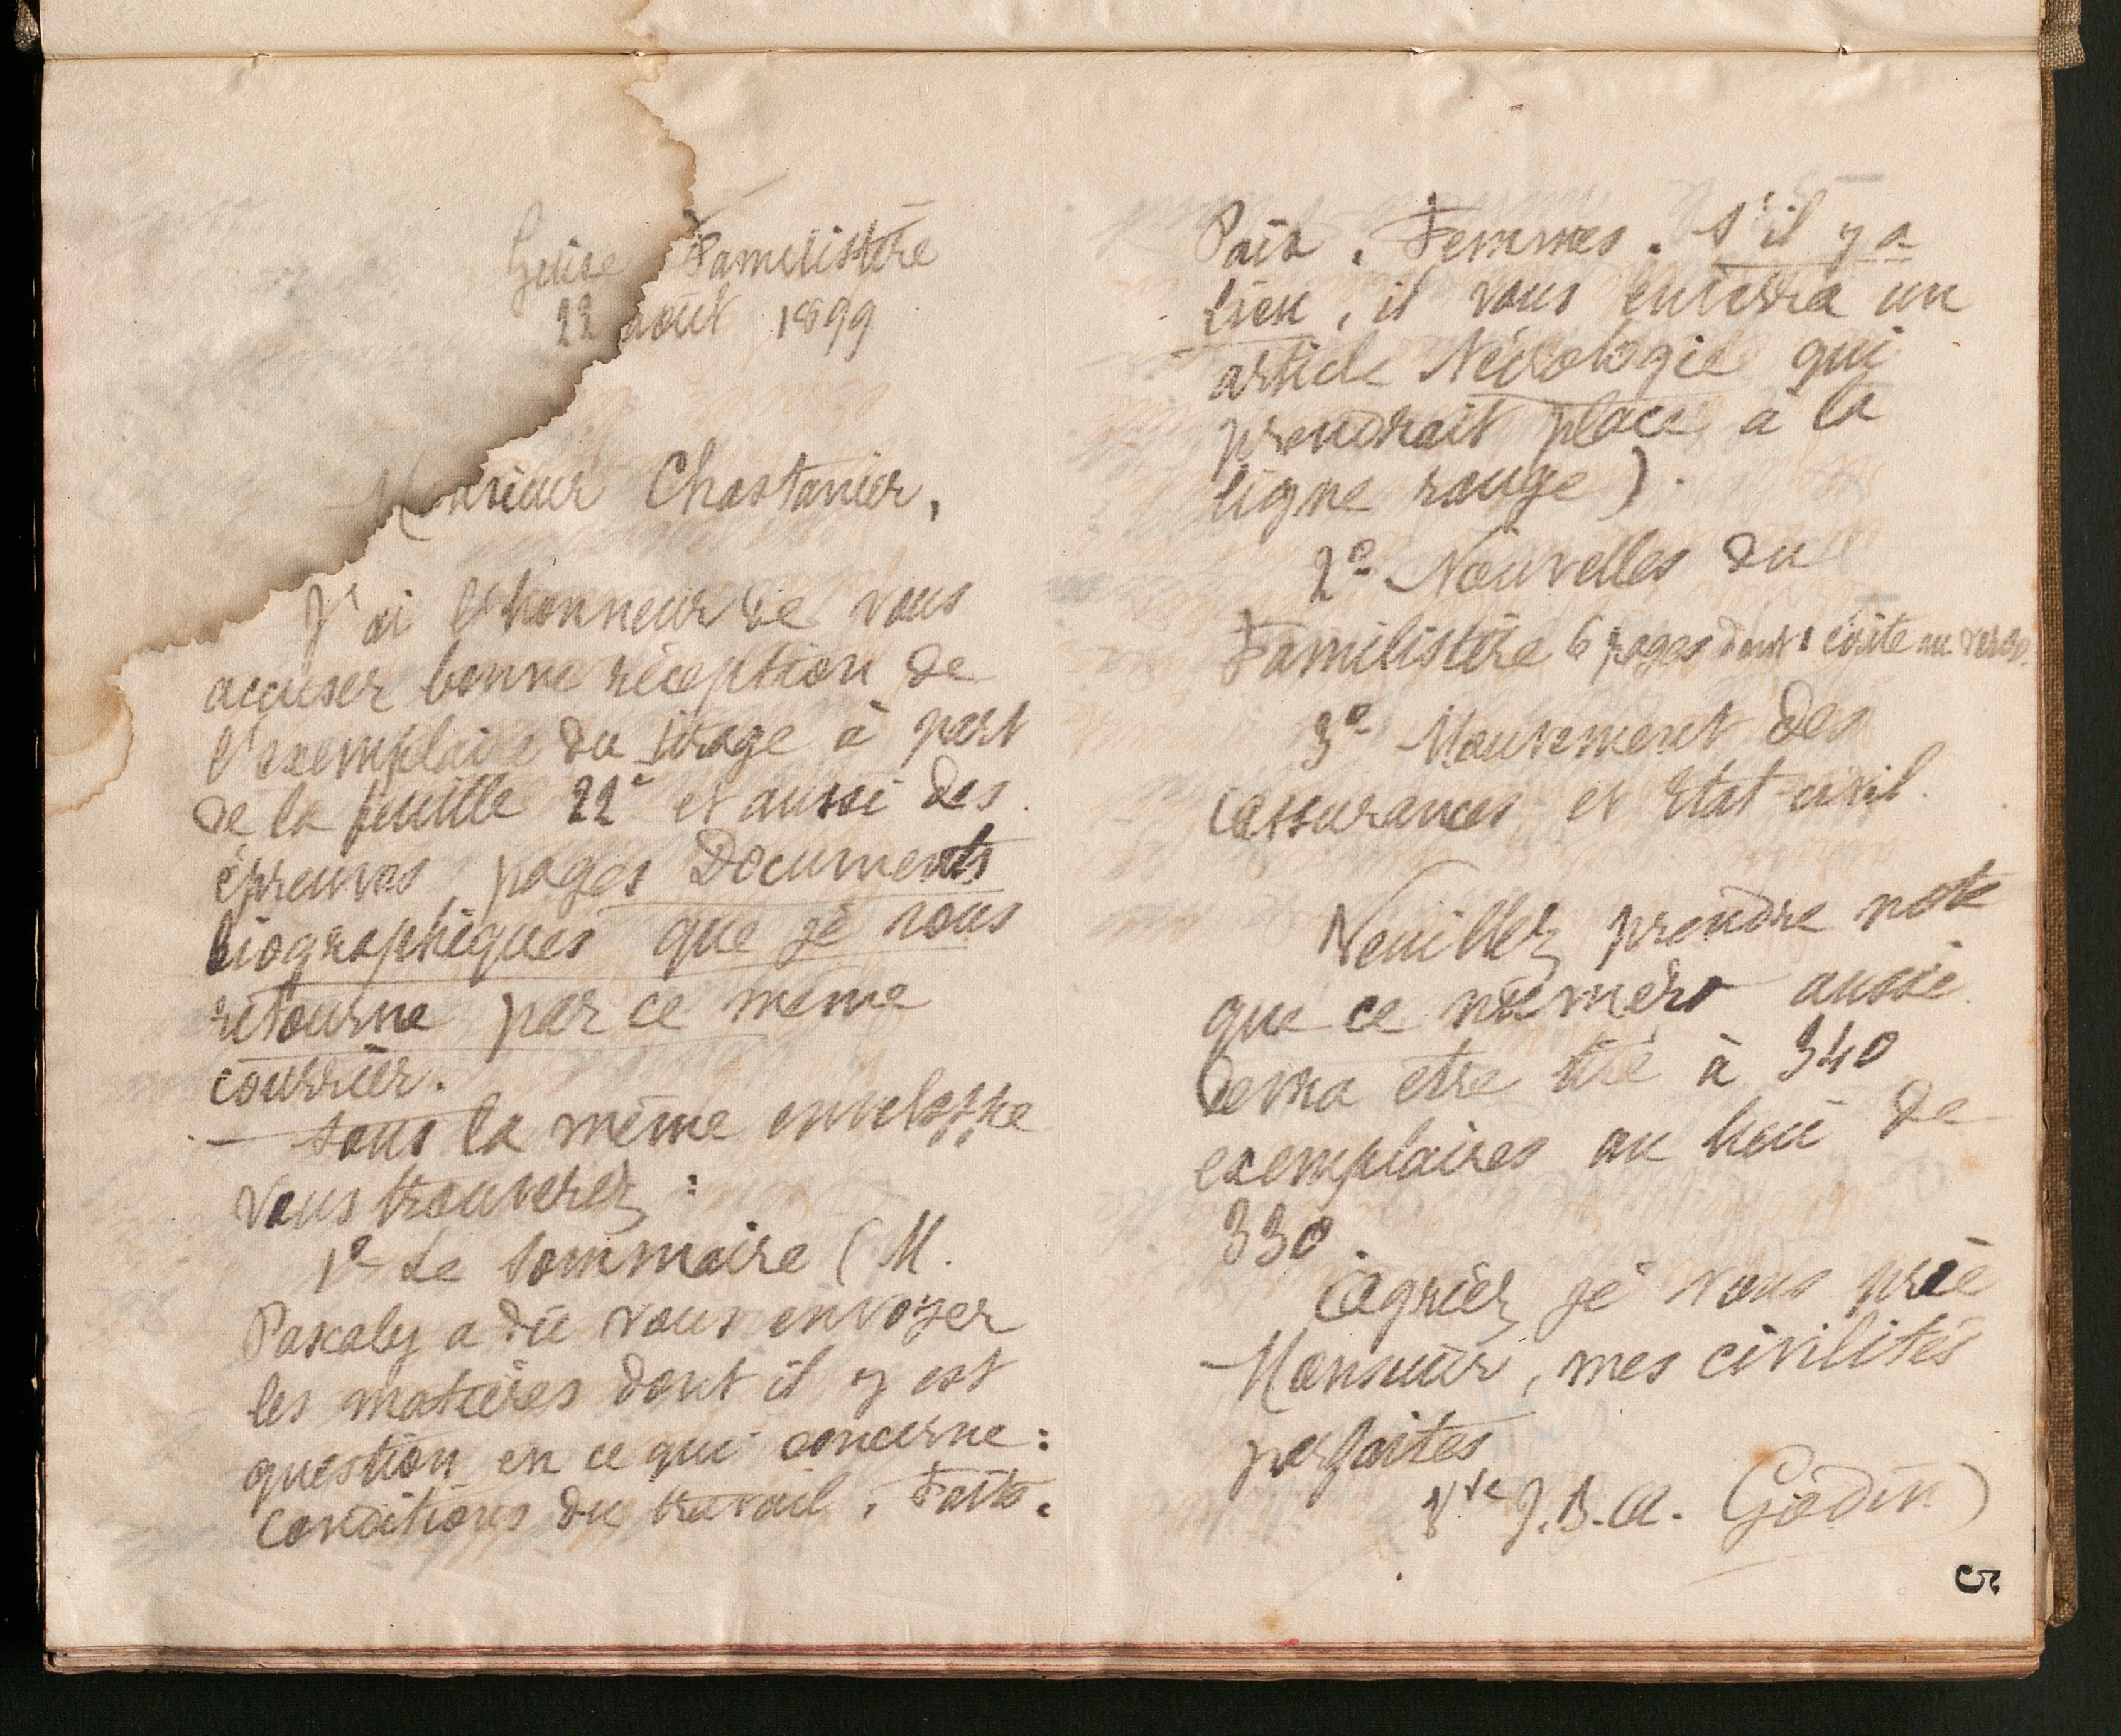 Guise Familistère
22 août 1899
Monsieur Chastanier,
J'ai l'honneur de vous
accuser bonne réception de
l'exemplaire du tirage à part
de la feuille 22e et aussi des
épreuves pages Documents
biographiques que je vous
retourne par ce même
courrier.
— Sous la même enveloppe
vous trouverez :
1o Le Sommaire (M.
Pascaly a dû vous envoyer
les matières dont il y est
question en ce qui concerne :
Conditions du travail, Faits.
Paix. Femmes. S'il y a
lieu, il vous enverra un
article Nécrologie qui
prendrait place à la
ligne rouge).
2o Nouvelles du
Familistère 6 pages dont 1 écrite au verso.
3o Mouvement des
assurances et Etat-civil.
Veuillez prendre note
que ce numéro aussi
devra être tiré à 340
exemplaires au lieu de
330
Agréez je vous prie
Monsieur, mes civilités
parfaites
Vve J.B.A. Godin
5